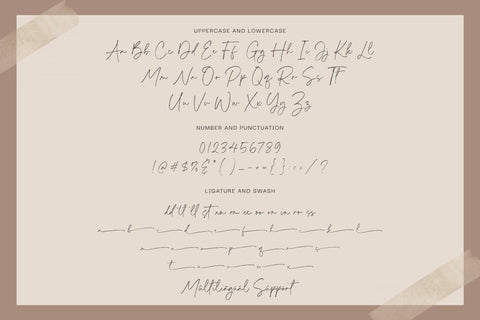 UPPERCASE AND LOWERCASE
Aa Bb Cc Dd Ee Ff Gg Hh Ii Jj Kk Ll
Mm Nn Oo Pp Qq Rr Ss Tt
Uu Vv Ww Xx Yy Zz
NUMBER AND PUNCTUATION
0123456789
LIGATURE AND SWASH
a b c d e f h i k l
m n o p q s
t u v w x
Multilingual Support